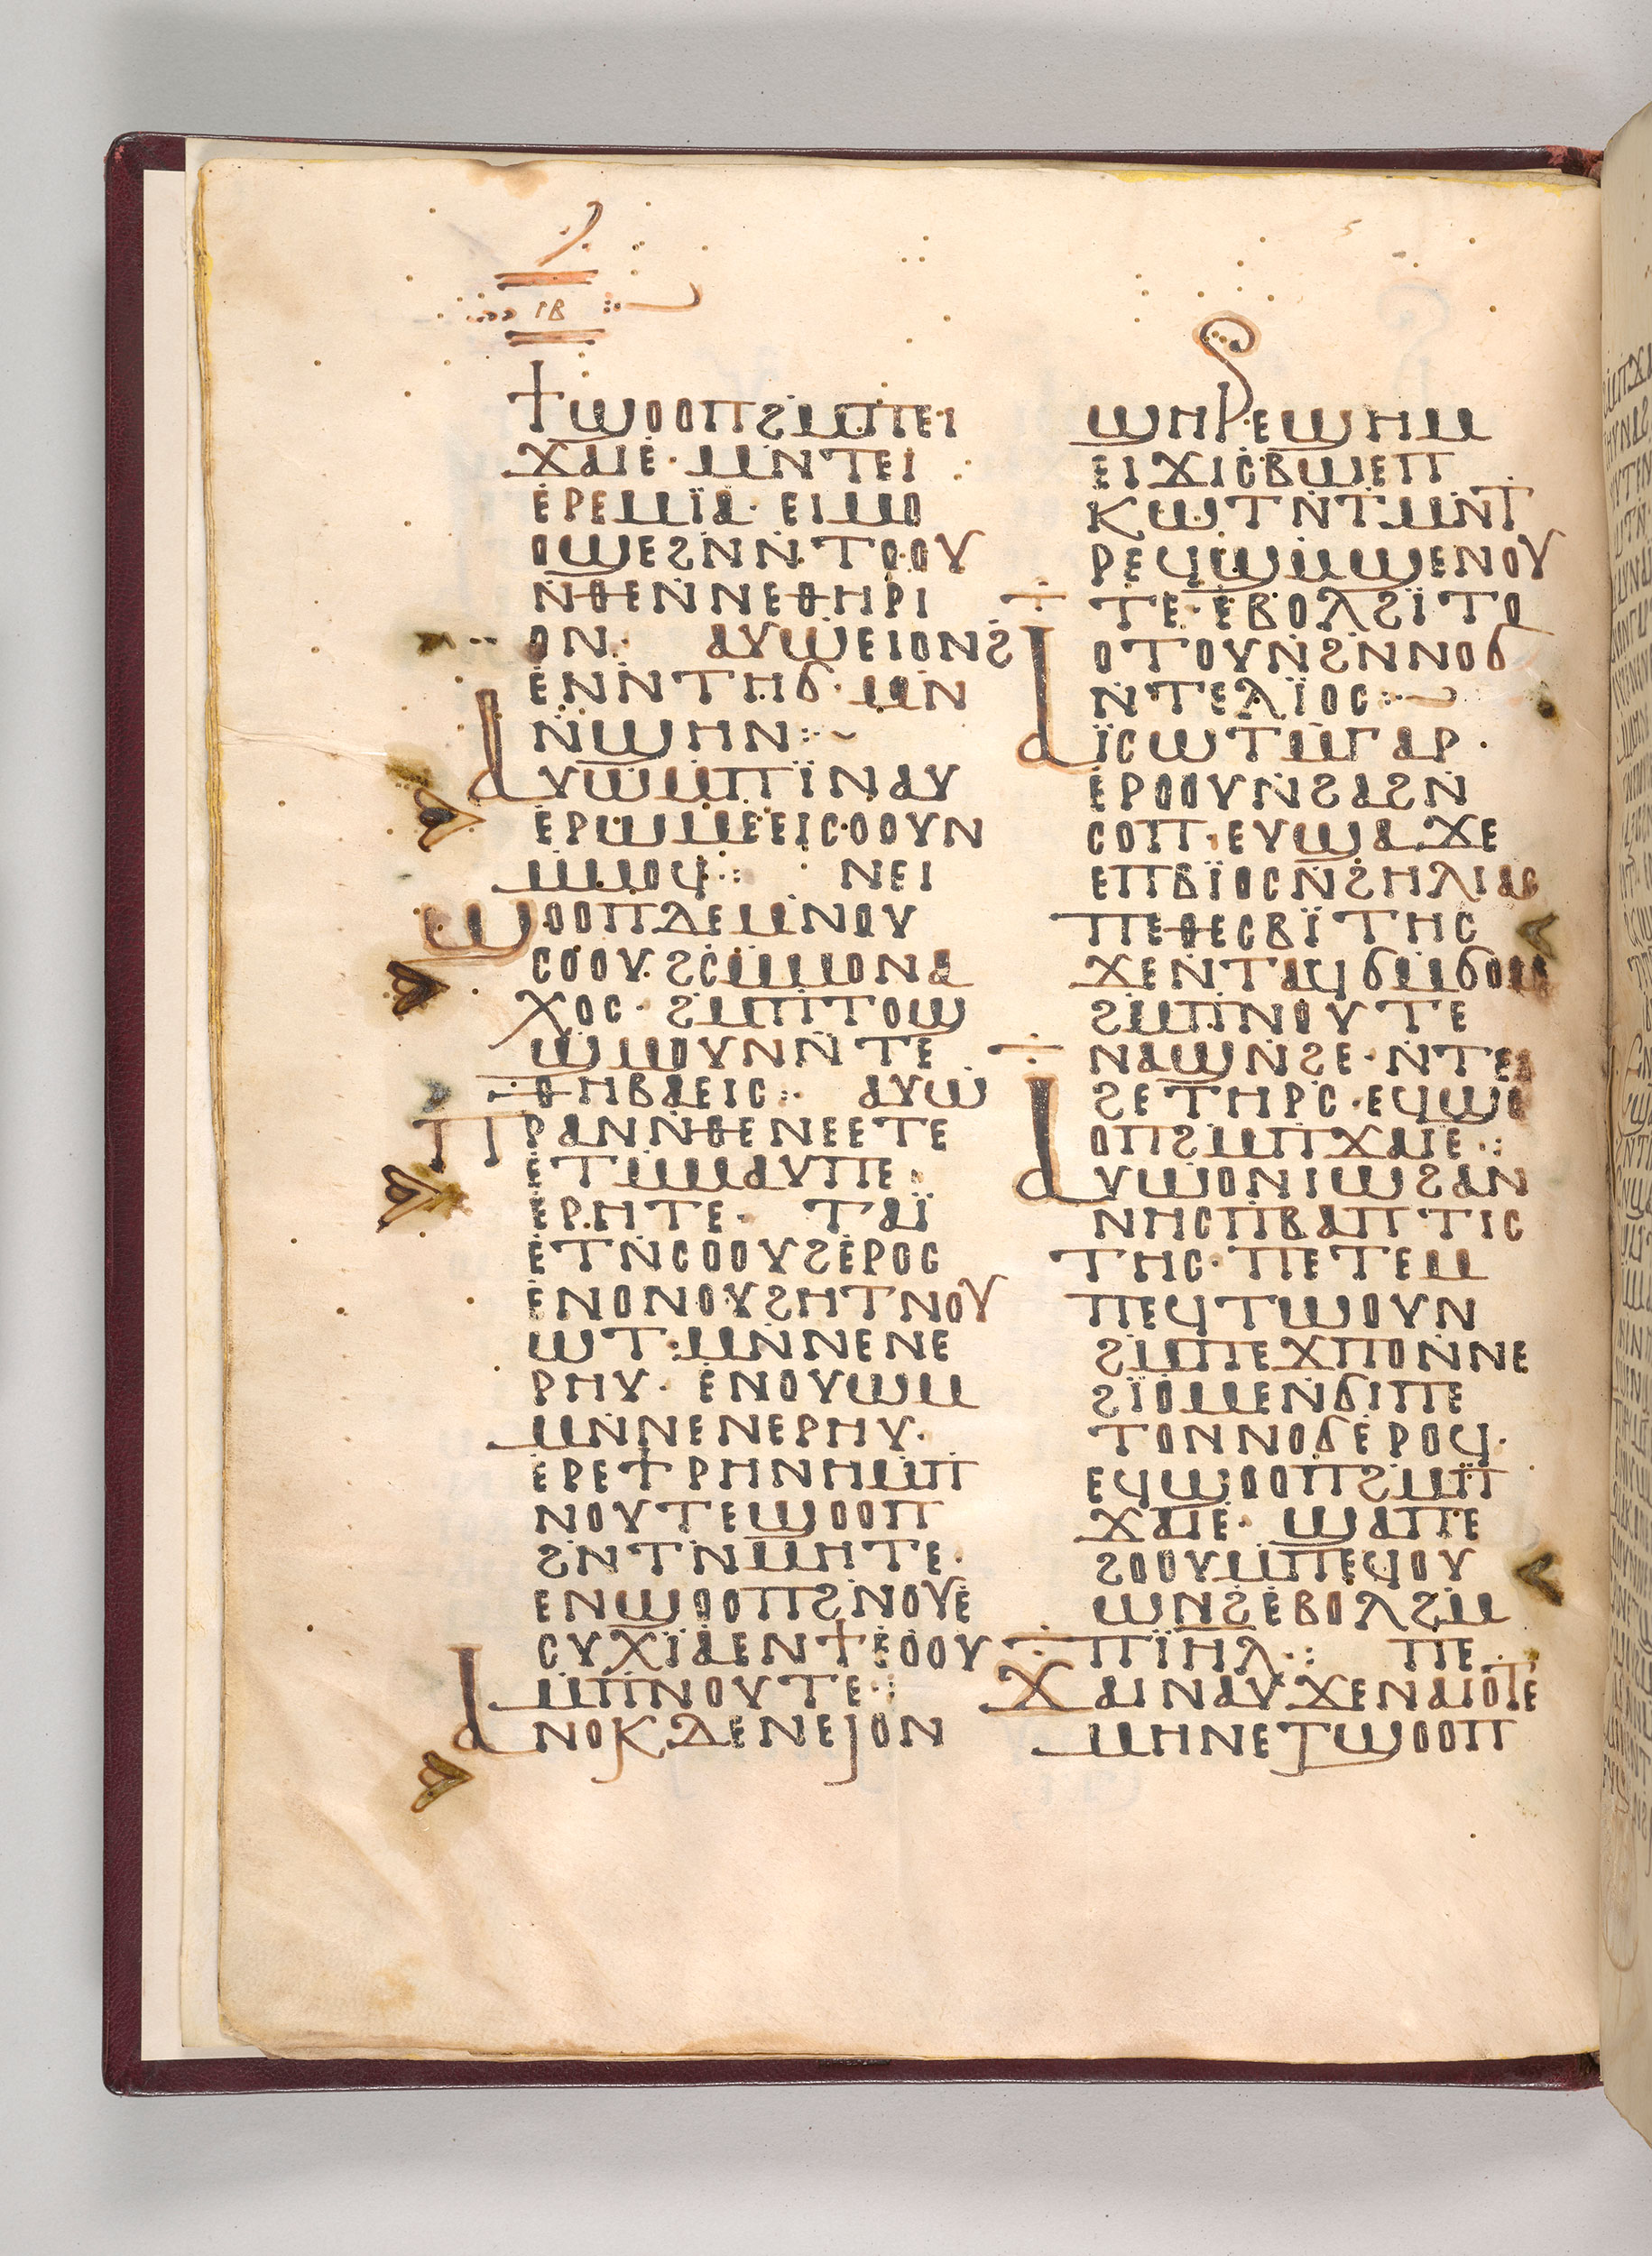 ⲓⲃ
ϯϣⲟⲟⲡϩⲙⲡⲉⲓ
ϫⲁⲓⲉ· ⲙⲛⲧⲉⲓ
ⲉⲣⲉⲙⲓ̈ⲁ· ⲉⲓⲙⲟ
ⲟϣⲉϩⲛⲛⲧⲟⲟⲩ
ⲛⲑⲉⲛⲛⲉⲑⲏⲣⲓ
ⲟⲛ· ⲁⲩⲱⲉⲓⲟⲛϩ
ⲉⲛⲛⲧⲏϭ· ⲙⲛ
ⲛϣⲏⲛ:~
ⲁⲩⲱⲙⲡⲓ̈ⲛⲁⲩ
ⲉⲣⲱⲙⲉⲉⲓⲥⲟⲟⲩⲛ
ⲙⲙⲟϥ: ⲛⲉⲓ
ϣⲟⲟⲡⲇⲉⲙⲛⲟⲩ
ⲥⲟⲟⲩϩⲥⲙⲙⲟⲛⲁ
ⲭⲟⲥ· ϩⲙⲡⲧⲟϣ
ϣⲙⲟⲩⲛⲛⲧⲉ
ⲑⲏⲃⲁⲉⲓⲥ: ⲁⲩⲱ
ⲡⲣⲁⲛⲛⲑⲉⲛⲉⲉⲧⲉ
ⲉⲧⲙⲙⲁⲩⲡⲉ:
ⲉⲣⲏⲧⲉ· ⲧⲁⲓ̈
ⲉⲧⲛⲥⲟⲟⲩϩⲉⲣⲟⲥ
ⲉⲛⲟⲛⲟⲩϩⲏⲧⲛⲟⲩ
ⲱⲧ·ⲙⲛⲛⲉⲛⲉ
ⲣⲏⲩ· ⲉⲛⲟⲩⲱⲙ
ⲙⲛⲛⲉⲛⲉⲣⲏⲩ·
ⲉⲣⲉϯⲣⲏⲛⲏⲙⲡ
ⲛⲟⲩⲧⲉϣⲟⲟⲡ
ϩⲛⲧⲛⲙⲏⲧⲉ·
ⲉⲛϣⲟⲟⲡϩⲛⲟⲩⲉ
ⲥⲩⲭⲓ̈ⲁⲉⲛϯⲉⲟⲟⲩ
ⲙⲡⲛⲟⲩⲧⲉ:
ⲁⲛⲟⲕⲇⲉⲛⲉⲓⲟⲛ
ϣⲏⲣⲉϣⲏⲙ
ⲉⲓϫⲓⲥⲃⲱⲉⲡ
ⲕⲱⲧⲛⲧⲙⲛⲧ
ⲣⲉϥϣⲙϣⲉⲛⲟⲩ
ⲧⲉ·ⲉⲃⲟⲗϩⲓⲧⲟ
ⲟⲧⲟⲩⲛϩⲛⲛⲟϭ
ⲛⲧⲉⲗⲓ̈ⲟⲥ:~
ⲁⲓ̈ⲥⲱⲧⲙⲅⲁⲣ·
ⲉⲣⲟⲟⲩⲛϩⲁϩⲛ
ⲥⲟⲡ·ⲉⲩϣⲁϫⲉ
ⲉⲡⲃⲓ̈ⲟⲥⲛϩⲏⲗⲓⲁⲥ
ⲡⲉⲑⲉⲥⲃⲓ̈ⲧⲏⲥ
ϫⲉⲛⲧⲁϥϭⲙϭⲟⲙ
ϩⲙⲡⲛⲟⲩⲧⲉ
ⲛⲁϣⲛϩⲉ·ⲛⲧⲉϥ
ϩⲉⲧⲏⲣⲥ·ⲉϥϣⲟ
ⲟⲡϩⲙⲡϫⲁⲓⲉ:
ⲁⲩⲱⲟⲛⲓⲱϩⲁⲛ
ⲛⲏⲥⲡⲃⲁⲡⲧⲓⲥ
ⲧⲏⲥ· ⲡⲉⲧⲉⲙ
ⲡⲉϥⲧⲱⲟⲩⲛ
ϩⲙⲡⲉϫⲡⲟⲛⲛⲉ
ϩⲓ̈ⲟⲙⲉⲛϭⲓⲡⲉ
ⲧⲟⲛⲛⲟϭⲉⲣⲟϥ·
ⲉϥϣⲟⲟⲡϩⲙⲡ
ϫⲁⲓⲉ· ϣⲁⲡⲉ
ϩⲟⲟⲩⲙⲡⲉϥⲟⲩ
ⲱⲛϩⲉⲃⲟⲗϩⲙ
ⲡⲓ̈ⲏⲗ: ⲡⲉ
ϫⲁⲓⲛⲁⲩϫⲉⲛⲁⲓⲟⲧⲉ
ⲙⲏⲛⲉⲧϣⲟⲟⲡ